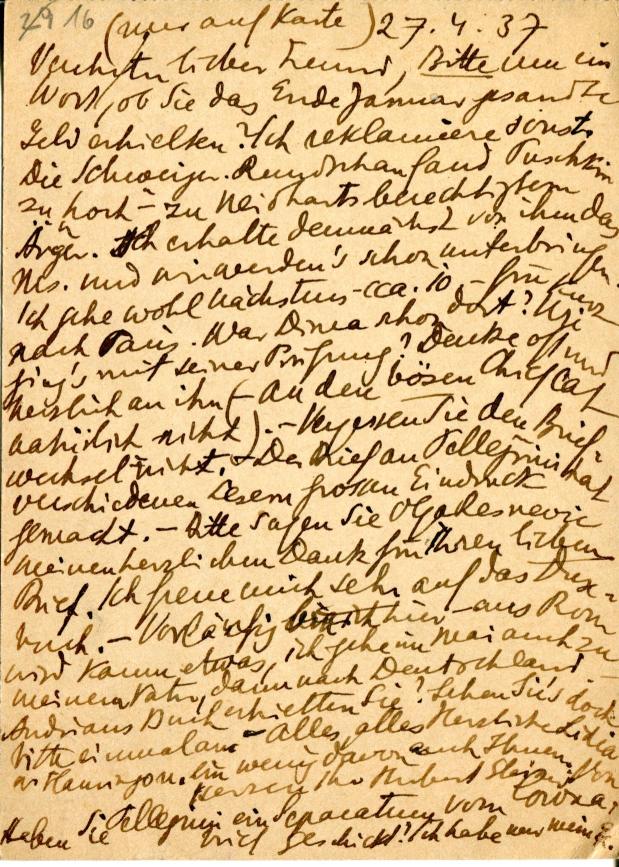 29 16 (nur auf Karte) 27. 4. 37
Verehrter lieber Freund, Bitte nur ein
Wort, ob Sie das Ende Januar gesandte
Geld erhielten? Ich reklamiere sonst.
Die Schweizer. Rundschau fand Puschkin
zu hoch – zu Neidharts berechtigtem
Ärger. Ich erhalte demnächst von ihm das
Ms. und wir werden's schon unterbringen.
Ich gehe wohl nächstens – cca. 10. – für kurz
nach Paris. War Dima schon dort? Wie
ging's mit seiner Prüfung? Denke oft und
herzlich an ihn (– an den bösen Chiefcat
natürlich nicht). – Vergessen Sie den Brief-
wechsel nicht. – Der Brief an Pellegrini hat
verschiedenen Lesern grossen Eindruck
gemacht. – Bitte sagen Sie
meinen herzlichen Dank für Ihren lieben
Brief. Ich freue mich sehr auf das
buch. – Vorläufig bin ich hier – aus Rom
wird kaum etwas, ich gehe im Mai auch zu
meinem Vater, dann nach Deutschland. –
Andrians Buch erhielten Sie? Sehen Sie's doch
bitte einmal an – Alles, alles Herzliche Lidia
Ein wenig davon auch Ihnen. Von
Herzen Ihr Herbert Steiner
Haben Sie Pellegrini ein Separatum vom Corona-
brief geschickt? Ich habe nur meine.